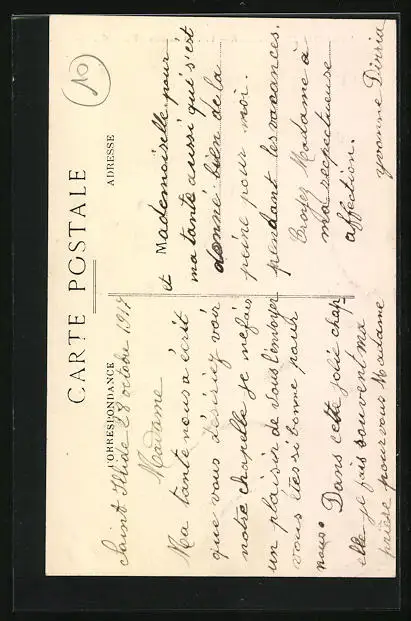 CARTE POSTALE
CORRESPONDANCE
ADRESSE
10
Saint Illide 28 octobre 1917
Madame
Ma tante vous a écrit
que vous désiriez voir
notre chapelle je me fais
un plaisir de vous l'envoyer
vous êtes si bonne pour
nous. Dans cette jolie chap-
elle je fais souvent ma
prière pour vous Madame
et Mademoiselle pour
ma tante aussi qui s'est
donné bien de la
peine pour moi.
pendant les vacances.
Croyez Madame à
ma respectueuse
affection.
Yvonne